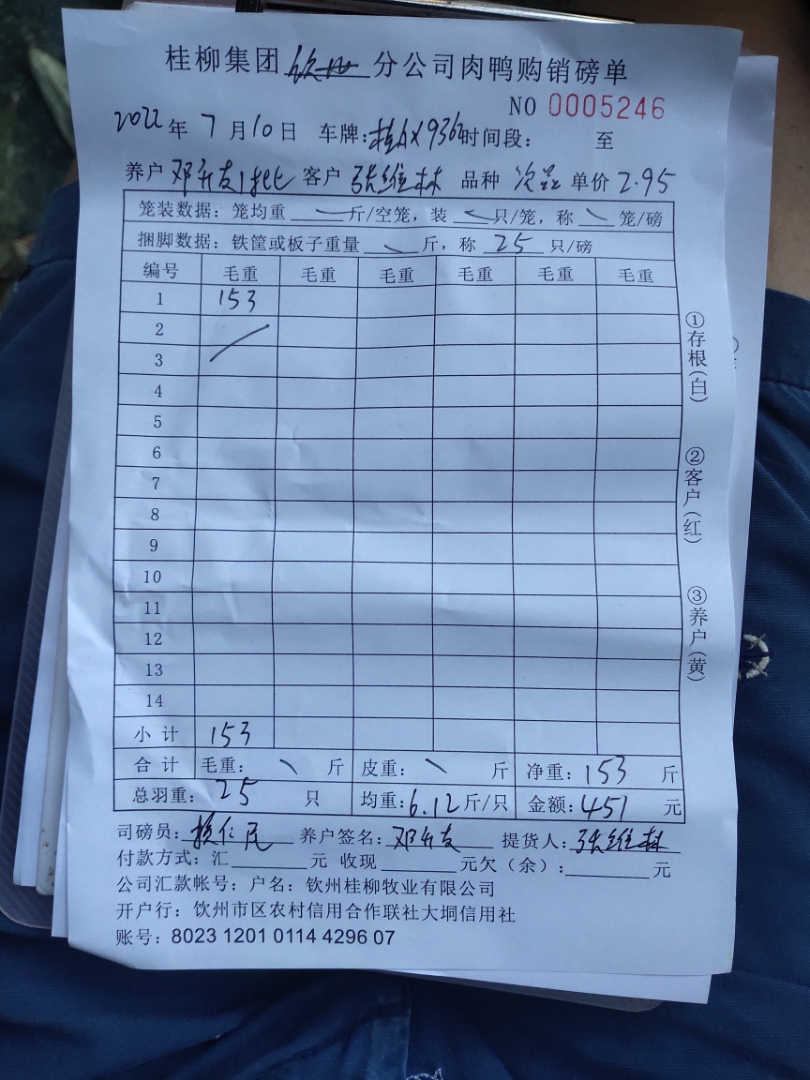 桂柳集团钦州分公司肉鸭购销磅单
NO 0005246
2022年7月10日 车牌：桂AX936 时间段： 至
养户 邓升友1批 客户 张维林 品种 次品 单价 2.95
笼装数据：笼均重 斤/空笼，装 只/笼，称 笼/磅
捆脚数据：铁筐或板子重量 斤，称 25 只/磅
编号 毛重 毛重 毛重 毛重 毛重 毛重
1 153
2
3
4
5
6
7
8
9
10
11
12
13
14
小计 153
合计 毛重： 斤 皮重： 斤 净重：153 斤
总羽重：25 只 均重：6.12斤/只 金额：451 元
司磅员：赖仁民 养户签名：邓升友 提货人：张维林
付款方式：汇 元 收现 元欠（余）： 元
公司汇款帐号：户名：钦州桂柳牧业有限公司
开户行：饮州市区农村信用合作联社大垌信用社
账号：8023 1201 0114 4296 07
①存根(白)
②客户(红)
③养户(黄)